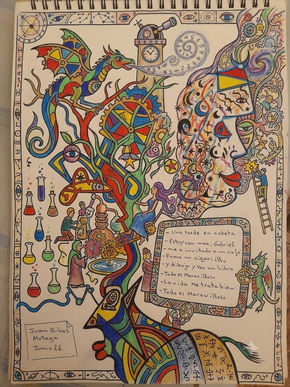 - Una tarde en cabeta
- Estoy con max, Gabriel
- me a invitado a un café
- Fumo un cigarrillo
y dibujo y veo un libro
- Todo es Maravilloso
- La vida me trata bien
- Todo es Maravilloso
Juan Ribas
Motaga
Junio 26